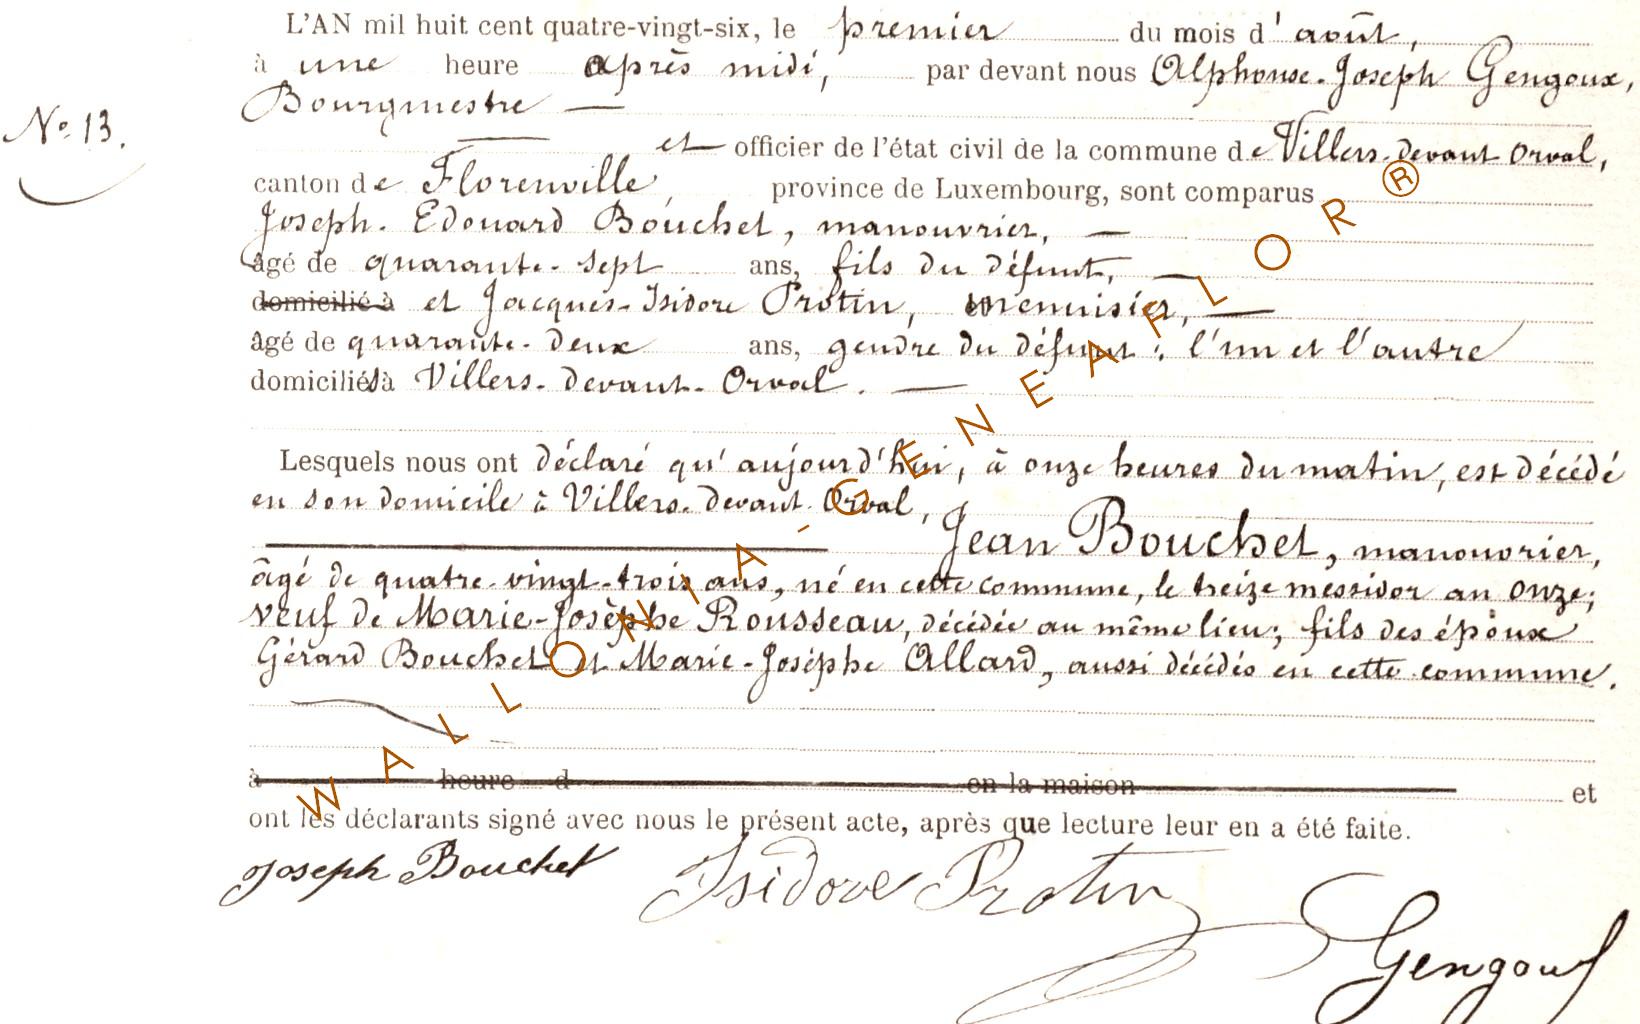 L'AN mil huit cent quatre-vingt-six, le premier du mois d'août,
à une heure après midi, par devant nous Alphonse-Joseph Gengoux,
Bourgmestre —
N° 13.
et officier de l'état civil de la commune de Villers-devant Orval,
canton de Florenville, province de Luxembourg, sont comparus
Joseph-Edouard Bouchet, manouvrier, —
âgé de quarante-sept ans, fils du défunt, —
domicilié à et Jacques-Isidore Protin, menuisier, —
âgé de quarante-deux ans, gendre du défunt ; l'un et l'autre
domiciliés à Villers-devant-Orval. —
Lesquels nous ont déclaré qu'aujourd'hui, à onze heures du matin, est décédé
en son domicile à Villers-devant-Orval,
Jean Bouchet, manouvrier,
âgé de quatre-vingt-trois ans, né en cette commune, le treize messidor an onze;
veuf de Marie-Josèphe Rousseau, décédée au même lieu; fils des époux
Gérard Bouchet et Marie-Joséphe Allard, aussi décédés en cette commune.
à heure d en la maison et
ont les déclarants signé avec nous le présent acte, après que lecture leur en a été faite.
Joseph Bouchet Isidore Protin
Gengoux
WALLONIA-GENEAFLOR®